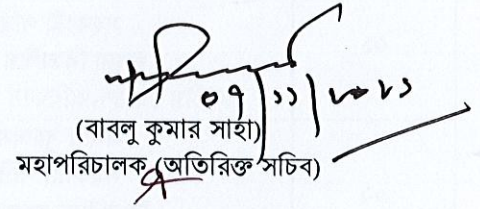 ০৭/১১/২০২১
(বাবলু কুমার সাহা)
মহাপরিচালক (অতিরিক্ত সচিব)